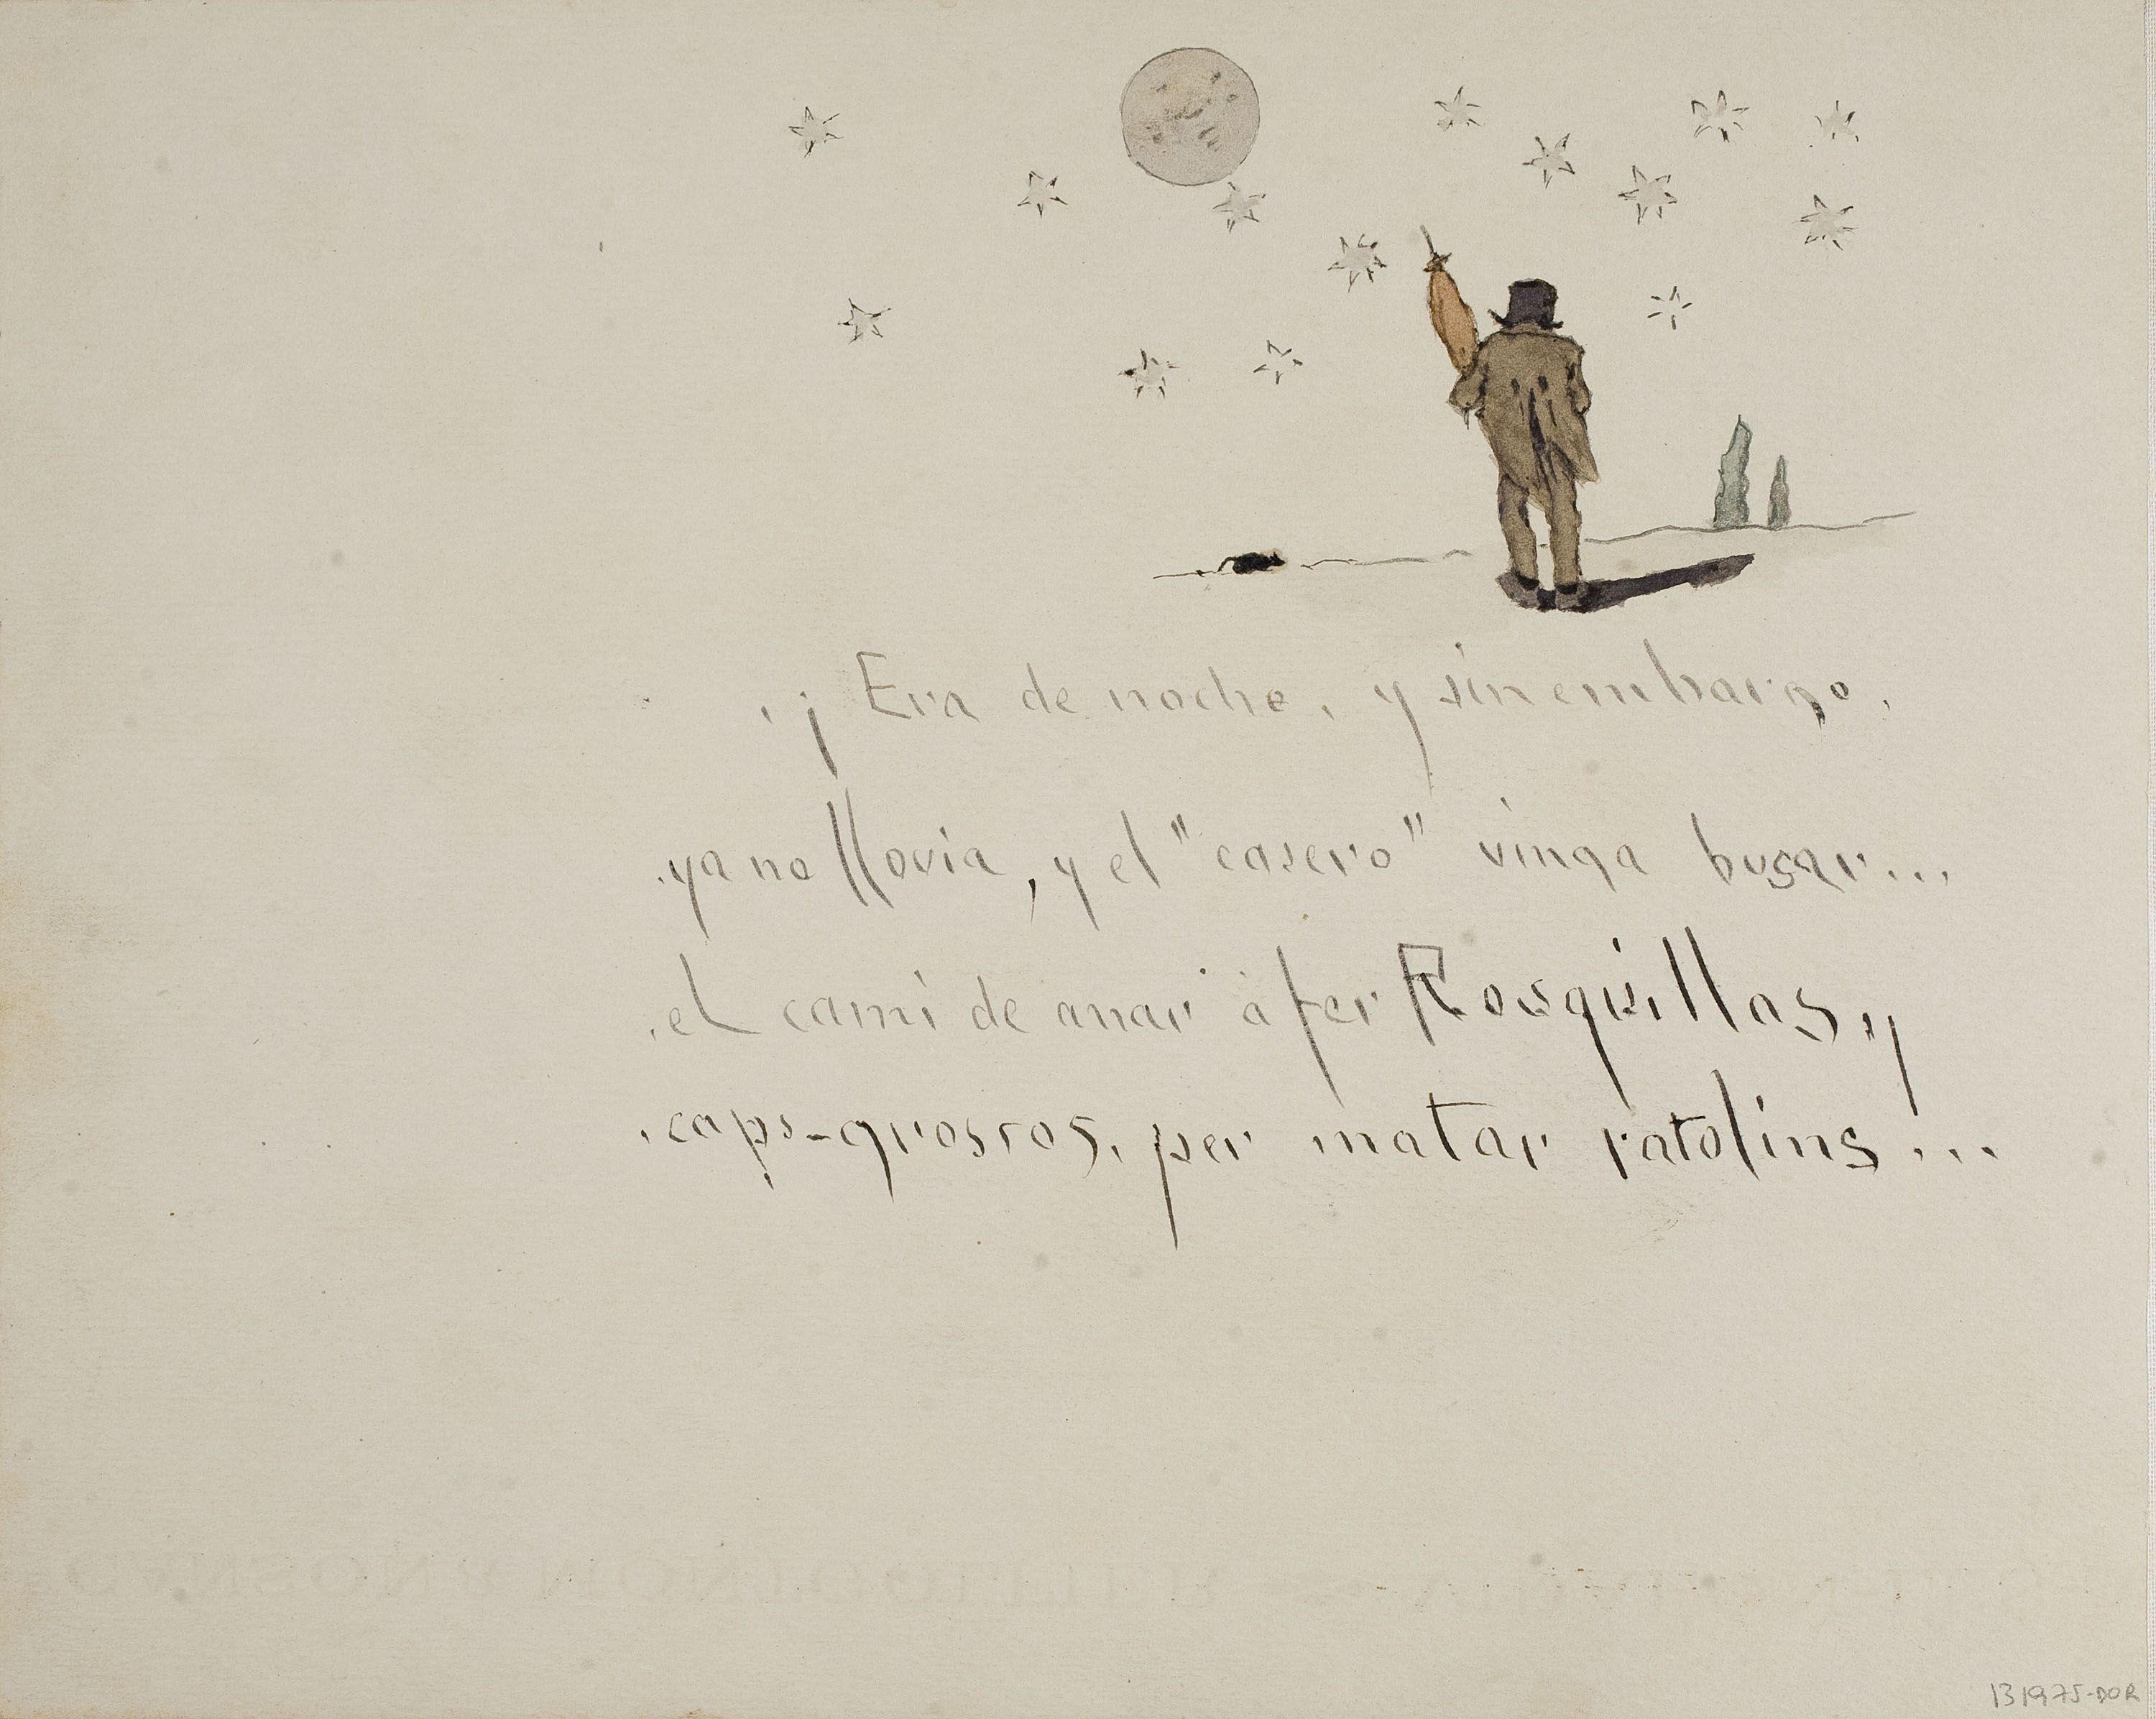 ¡Era de noche, y sin embargo.
ya no llovia, y el "casero" vinga busar...
el cami de anar à fer Rosquillas, y
caps-grossos, per matar ratolins...
131975-DOR